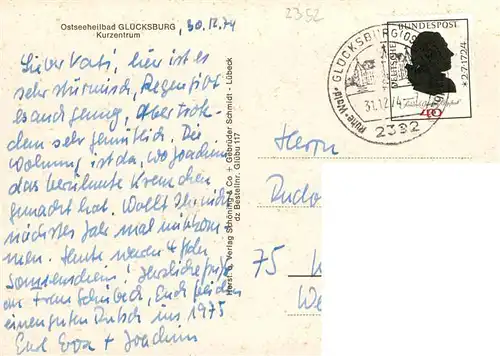 Ostseeheilbad GLÜCKSBURG
Kurzentrum
, 30.12.74
Lieber Vati, hier ist es
sehr stürmisch, Regen gibt
es auch genug, Aber trotz-
dem sehr gemütlich. Die
Wohnung ist da, wo Joachim
das berühmte
gemacht hat. Wollt Ihr nicht
nächstes Jahr mal mitkom-
men. Heute werden
Sonnenschein! Herzliche Grüße
an Frau Euch beiden
einen guten Rutsch ins 1975
Eure Eva + Joachim
Horst u. Verlag Schöning & Co + Gebrüder Schmidt - Lübeck
dz Bestellnr. Glübu 117
2352
GLÜCKSBURG (OS
Ruhe · Wald ·
31.12.74
2392
DEUTSCHE BUNDESPOST
* 2.7.1724
40
Herrn
Rudo
75 K
We